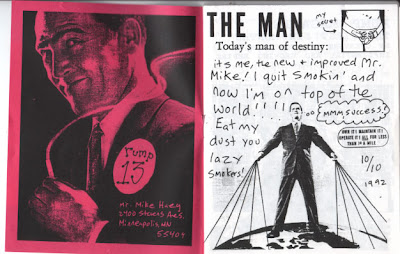 rump
13
Mr. Mike Huey
2400 Stevens Ave S.
Minneapolis, MN
55404
THE MAN
my
secret
Today's man of destiny:
its me, the new + improved Mr.
Mike! I quit Smokin' and
now I'm on top of the
world!!!!!
mmm success!
Eat my
dust you
lazy
smokers!
OWN IT! MAINTAIN IT!
OPERATE IT! ALL FOR LESS
THAN 1¢ A MILE
10/
10
1992